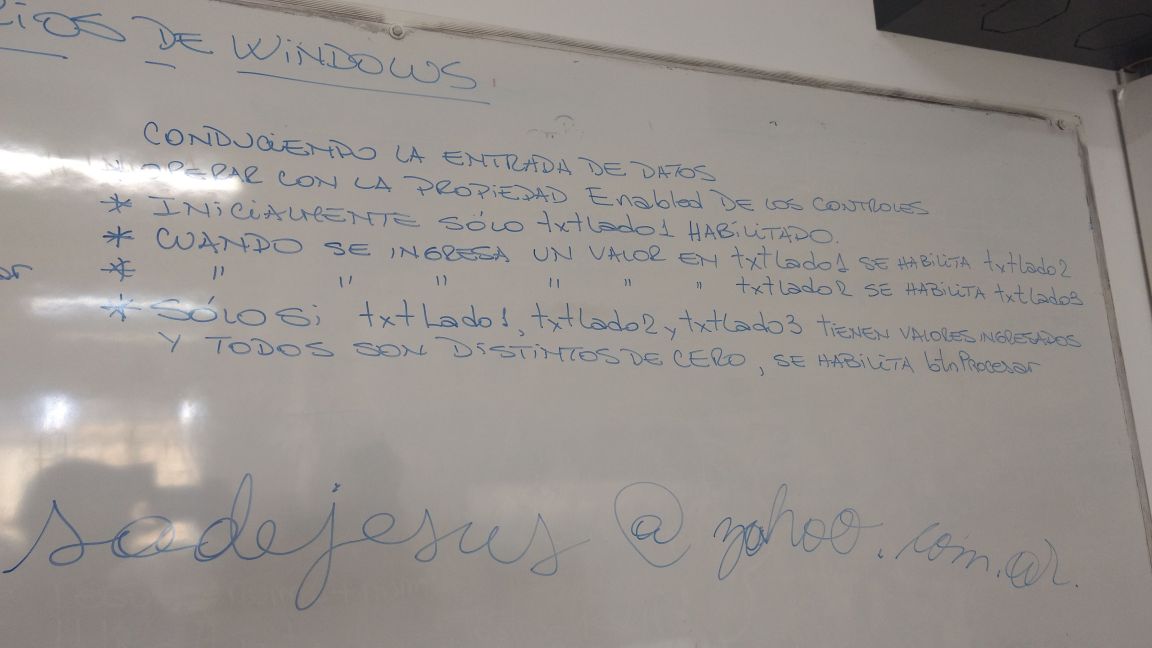 DE WINDOWS
CONDUCIENDO LA ENTRADA DE DATOS
* OPERAR CON LA PROPIEDAD Enabled DE LOS CONTROLES
* INICIALMENTE SÓLO txtLado1 HABILITADO.
* CUANDO SE INGRESA UN VALOR EN txtLado1 SE HABILITA txtLado2
* " " " " " " txtLado2 SE HABILITA txtLado3
* SÓLO Si txtLado1, txtLado2 y txtLado3 TIENEN VALORES INGRESADOS
Y TODOS SON DISTINTOS DE CERO, SE HABILITA btnProcesar
sadejesus@yahoo.com.ar.